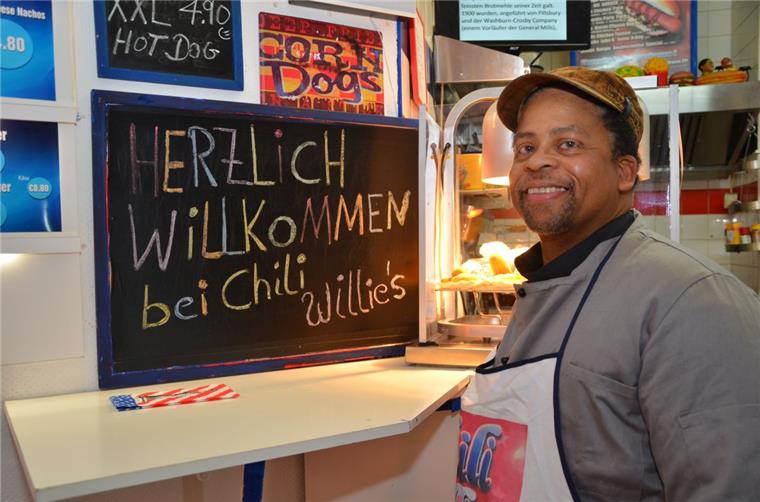 ese Nachos
.80
€0.80
XXL 4.90€
HOT DOG
DEEP-FRIED
CORN
DOGS
HERZLiCH
WiLLKOMMEN
bei CHiLi
WiLLiE'S
feinsten Brotmehle seiner Zeit galt.
1900 wurden, angeführt von Pillsbury
und der Washburn-Crosby Company
(einem Vorläufer der General Mills),